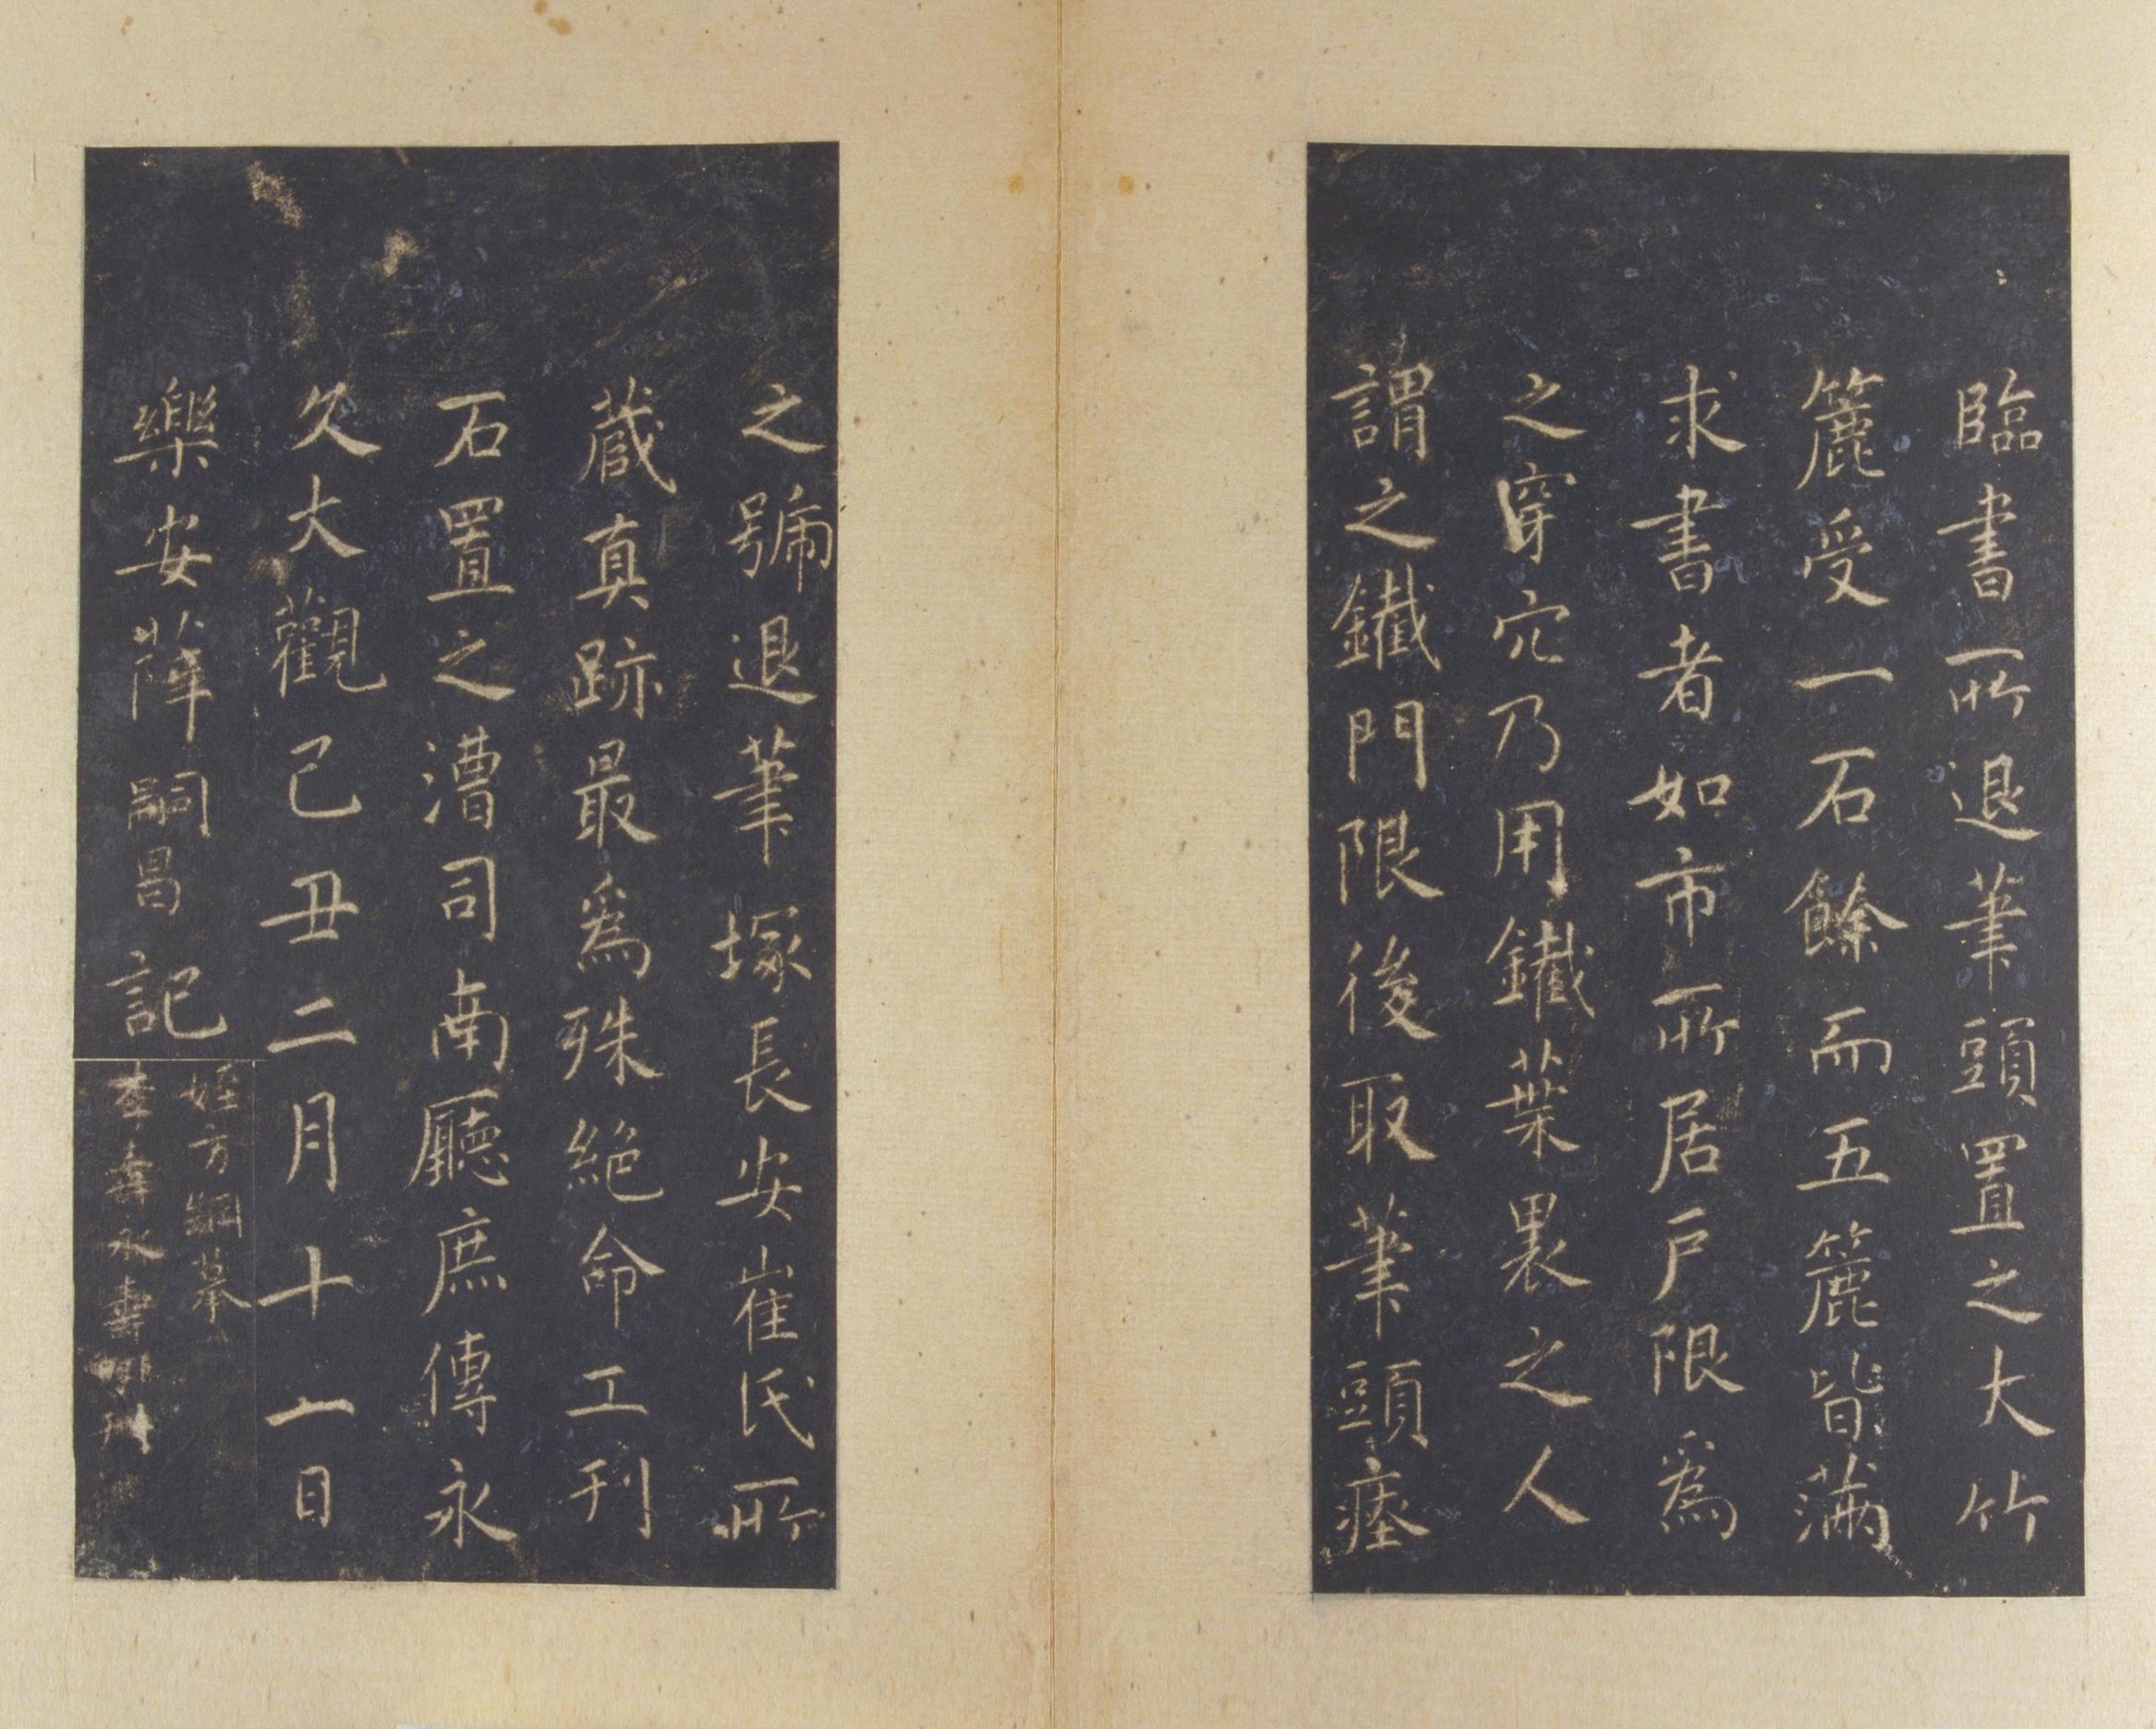 臨書所退筆頭置之大竹
簏受一石餘而五簏皆滿
求書者如市所居戶限爲
之穿穴乃用鐵葉裹之人
謂之鐵門限後取筆頭瘞
之號退筆塚長安崔氏所
蔵真跡最爲殊絕命工刊
石置之漕司南廳庶傳永
久大觀己丑二月十一日
樂安薛嗣昌記
姪方綱摹
李壽永書刊